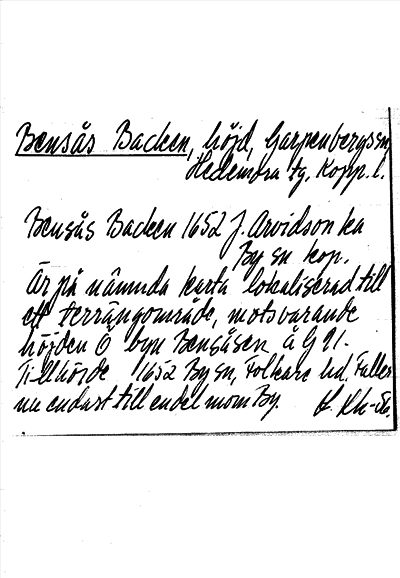 Bensås Backen, höjd, Garpenbergs sn,
Hedemora tg, Kopp. l.
Bensås Backen 1652 J. Arvidson ka
By sn kop.
Är på nämnda karta lokaliserad till
ett terrängområde, motsvarande
höjden Ö byn Bensåsen å G 91.
Tillhörde 1652 By sn, Folkare hd. Faller
nu endast till en del inom By.